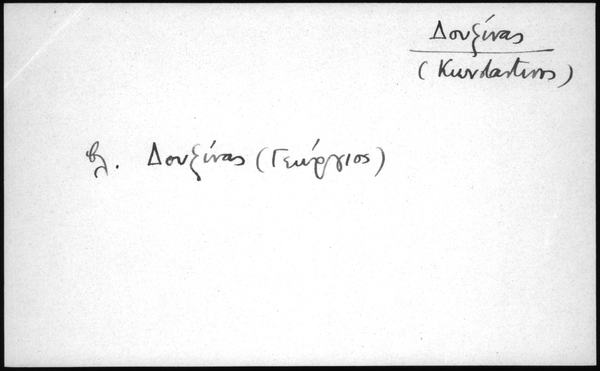 Δουζίνας
(Κωνσταντινος)
βλ. Δουζίνας (Γεώργιος)